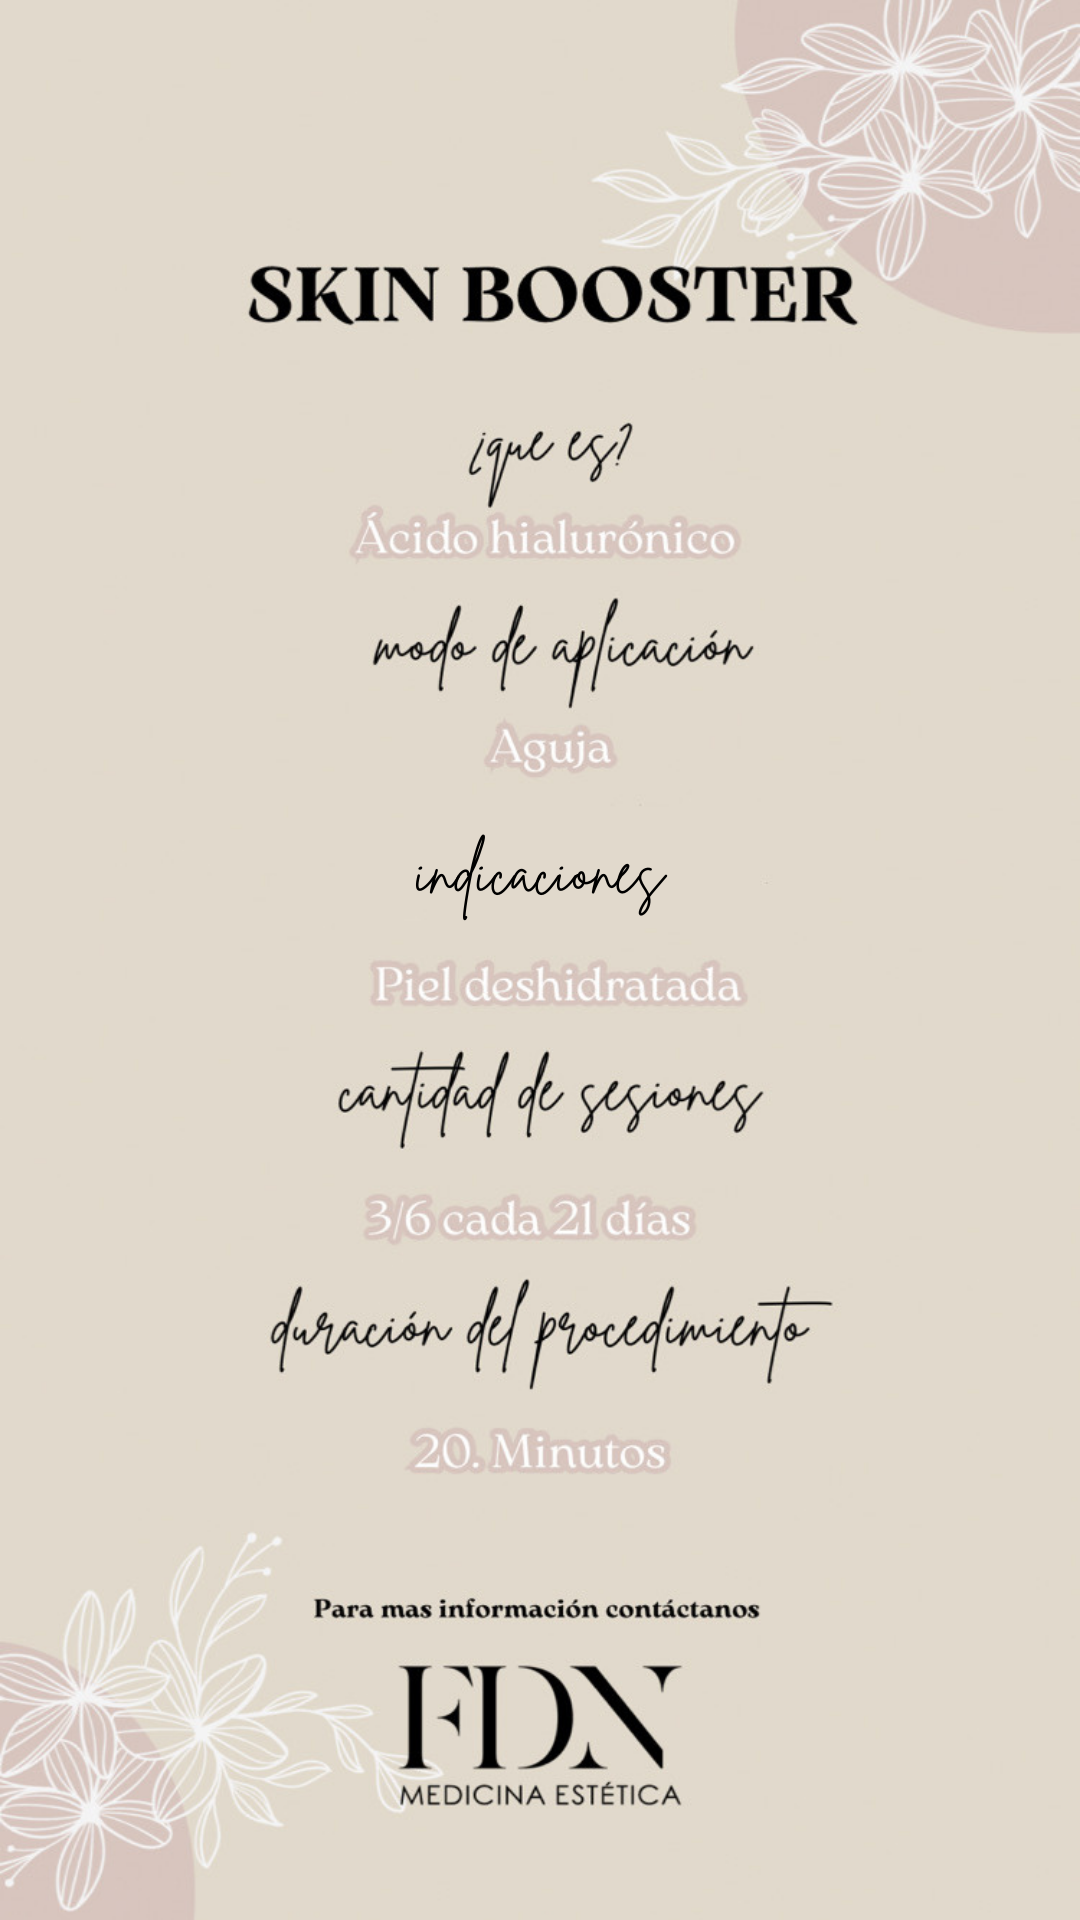 SKIN BOOSTER
¿que es?
Ácido hialurónico
modo de aplicación
Aguja
indicaciones
Piel deshidratada
cantidad de sesiones
3/6 cada 21 días
duración del procedimiento
20. Minutos
Para mas información contáctanos
FDN
MEDICINA ESTÉTICA